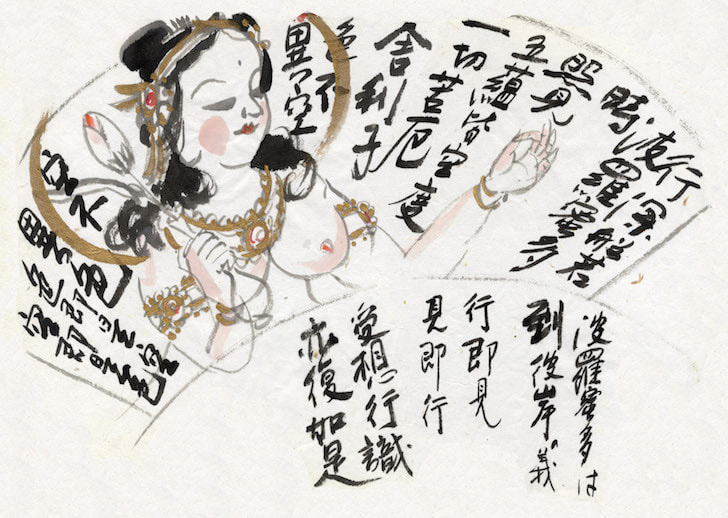 行深般若
波羅蜜多
時
照見
五蘊皆空度
一切苦厄
舎利子
色不
異空
空不
異色色即是空
空即是色
波羅蜜多は
到彼岸の義
行即見
見即行
受想行識
亦復如是